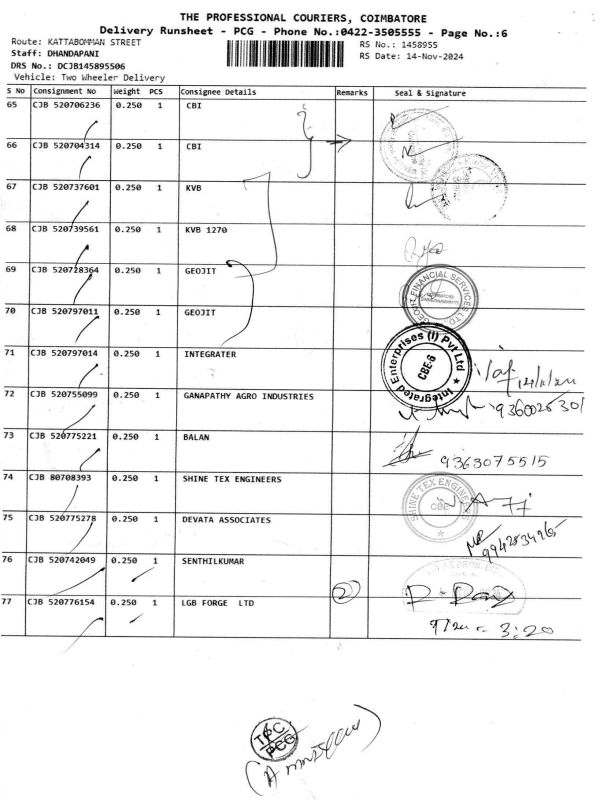 THE PROFESSIONAL COURIERS, COIMBATORE
Delivery Runsheet - PCG - Phone No.:0422-3505555 - Page No.:6
Route: KATTABOMMAN STREET RS No.: 1458955
Staff: DHANDAPANI RS Date: 14-Nov-2024
DRS No.: DCJB145895506
Vehicle: Two Wheeler Delivery
S No Consignment No Weight PCS Consignee Details Remarks Seal & Signature
65 CJB 520706236 0.250 1 CBI
66 CJB 520704314 0.250 1 CBI
67 CJB 520737601 0.250 1 KVB
68 CJB 520739561 0.250 1 KVB 1270
69 CJB 520728364 0.250 1 GEOJIT
GEOJIT FINANCIAL SERVICES LTD.
70 CJB 520797011 0.250 1 GEOJIT
71 CJB 520797014 0.250 1 INTEGRATER
Integrated Enterprises (I) Pvt Ltd
CBE-6
72 CJB 520755099 0.250 1 GANAPATHY AGRO INDUSTRIES
73 CJB 520775221 0.250 1 BALAN
9363075515
74 CJB 80708393 0.250 1 SHINE TEX ENGINEERS
SHINE TEX ENGINEERS
CBE
75 CJB 520775278 0.250 1 DEVATA ASSOCIATES
76 CJB 520742049 0.250 1 SENTHILKUMAR
77 CJB 520776154 0.250 1 LGB FORGE LTD
2
3:20
TPC
PCG